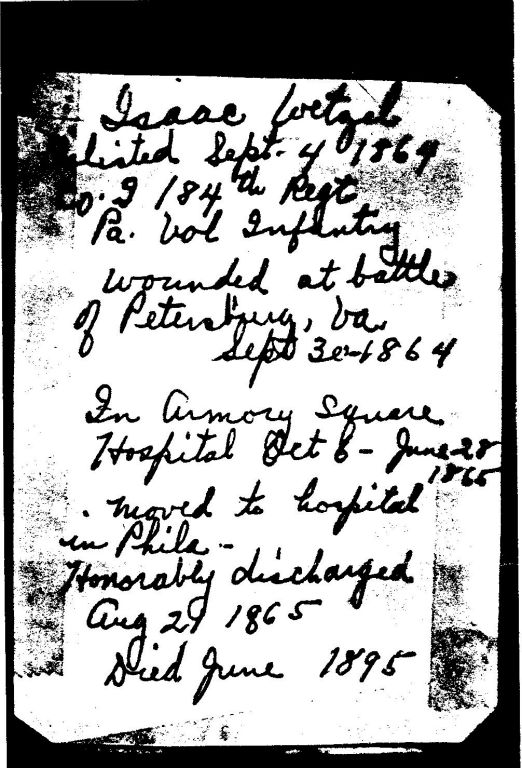 Isaac Wetzel
Enlisted Sept. 4 1864
Co. I 184th Regt
Pa. Vol Infantry
wounded at battle
of Petersburg, Va.
Sept 30-1864
In Armory Square
Hospital Oct 6 - June 28
1865
. moved to hospital
in Phila -
Honorably discharged
Aug 29 1865
Died June 1895